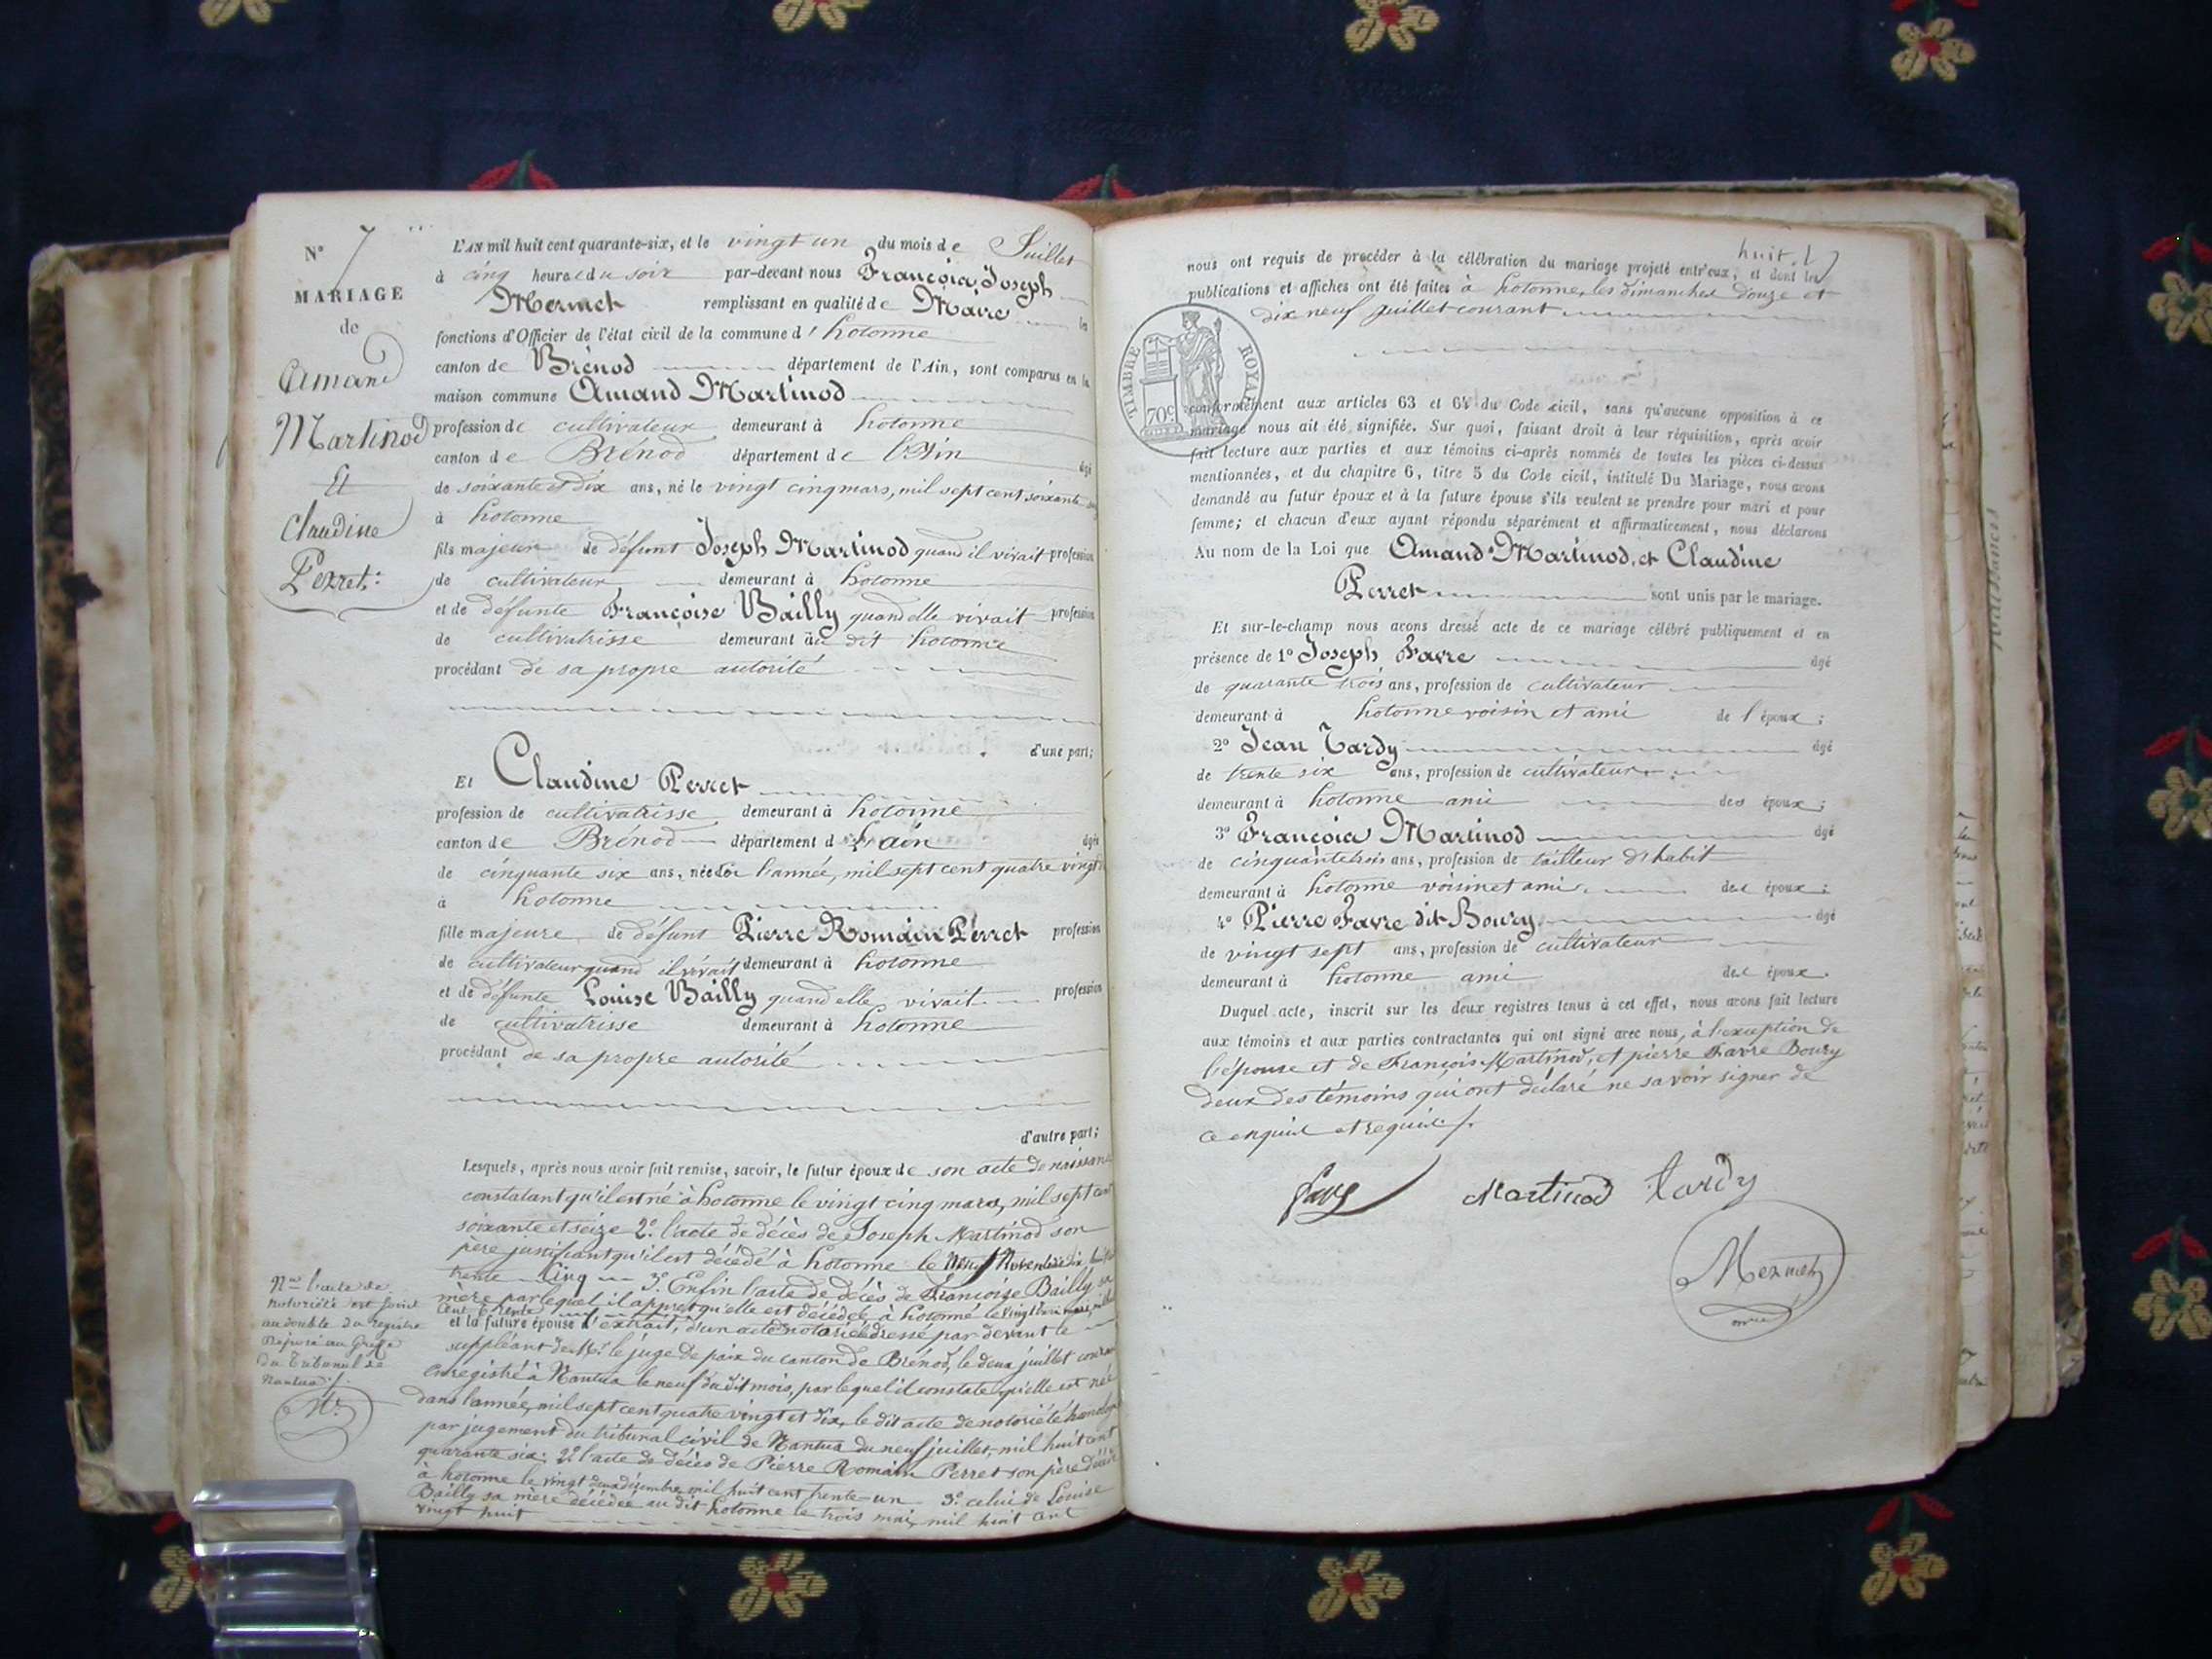 N° 7
MARIAGE
de
Amand
Martinod
Et
Claudine
Perret
L'AN mil huit cent quarante-six, et le vingt un du mois de Juillet
à cinq heures du soir par-devant nous François Joseph
Mermet remplissant en qualité de Maire les
fonctions d'Officier de l'état civil de la commune d'hotonne
canton de Brénod département de l'Ain, sont comparus en la
maison commune Amand Martinod
profession de cultivateur demeurant à hotonne
canton de Brénod département de l'Ain âgé
de soixante et dix ans, né le vingt cinq mars, mil sept cent soixante
à hotonne
fils majeur de défunt Joseph Martinod quand il vivait profession
de cultivateur demeurant à hotonne
et de défunte Françoise Bailly quand elle vivait profession
de cultivatrisse demeurant au dit hotonne
procédant de sa propre autorité
d'une part;
Et Claudine Perret
profession de cultivatrisse demeurant à hotonne
canton de Brénod département d l'ain âgée
de cinquante six ans, née l'année, mil sept cent quatre vingt
à hotonne
fille majeure de défunt Pierre Romain Perret profession
de cultivateur quand il vivait demeurant à hotonne
et de défunte Louise Bailly quand elle vivait profession
de cultivatrisse demeurant à hotonne
procédant de sa propre autorité
d'autre part;
Lesquels, après nous avoir fait remise, savoir, le futur époux de son acte de naissance
constatant qu'il est né à hotonne le vingt cinq mars, mil sept cent
soixante et seize 2° l'acte de décès de Joseph Martinod son
père justifiant qu'il est décédé à hotonne le
trente cinq 3° Enfin l'acte de décès de Françoise Bailly sa
mère par lequel il appret qu'elle est décédée à hotonne le vingt
cent trente
et la future épouse d'extrait, d'un acte notarié dressé par devant le
suppléant de Mr. le juge de paix du canton de Brénod, le deux juillet courant
enregistré à Nantua le neuf du dit mois, par lequel il constate qu'elle est née
dans l'année, mil sept cent quatre vingt et dix, le dit acte de notoriété homologué
par jugement du tribunal civil de Nantua du neuf juillet, mil huit cent
quarante six: 2° l'acte de décès de Pierre Romain Perret son père décédé
à hotonne le vingt deux décembre mil huit cent trente-un 3° celui de Louise
Bailly sa mère décédée au dit hotonne le trois mai, mil huit cent
vingt huit
Na l'acte de
notoriété est joint
au double du registre
déposé au Greffe
du Tribunal de
Nantua
Mt
huit
nous ont requis de procéder à la célébration du mariage projeté entr'eux, et dont les
publications et affiches ont été faites à hotonne, les dimanches douze et
dix neuf juillet courant
TIMBRE ROYAL
70c
conformément aux articles 63 et 64 du Code civil, sans qu'aucune opposition à ce
mariage nous ait été signifiée. Sur quoi, faisant droit à leur réquisition, après avoir
fait lecture aux parties et aux témoins ci-après nommés de toutes les pièces ci-dessus
mentionnées, et du chapitre 6, titre 5 du Code civil, intitulé Du Mariage, nous avons
demandé au futur époux et à la future épouse s'ils veulent se prendre pour mari et pour
femme; et chacun d'eux ayant répondu séparément et affirmativement, nous déclarons
Au nom de la Loi que Amand Martinod, et Claudine
Perret sont unis par le mariage.
Et sur-le-champ nous avons dressé acte de ce mariage célébré publiquement et en
présence de 1° Joseph Favre âgé
de quarante trois ans, profession de cultivateur
demeurant à hotonne voisin et ami de l'époux;
2° Jean Tardy âgé
de trente six ans, profession de cultivateur
demeurant à hotonne ami des époux;
3° François Martinod âgé
de cinquante trois ans, profession de tailleur d'habit
demeurant à hotonne voisin et ami des époux;
4° Pierre Favre dit Boury âgé
de vingt sept ans, profession de cultivateur
demeurant à hotonne ami des époux.
Duquel acte, inscrit sur les deux registres tenus à cet effet, nous avons fait lecture
aux témoins et aux parties contractantes qui ont signé avec nous, à l'exception de
l'épouse et de François Martinod, et pierre Favre Boury
deux des témoins qui ont déclaré ne savoir signer de
ce enquis et requis
favre Martinod tardy
Mermet